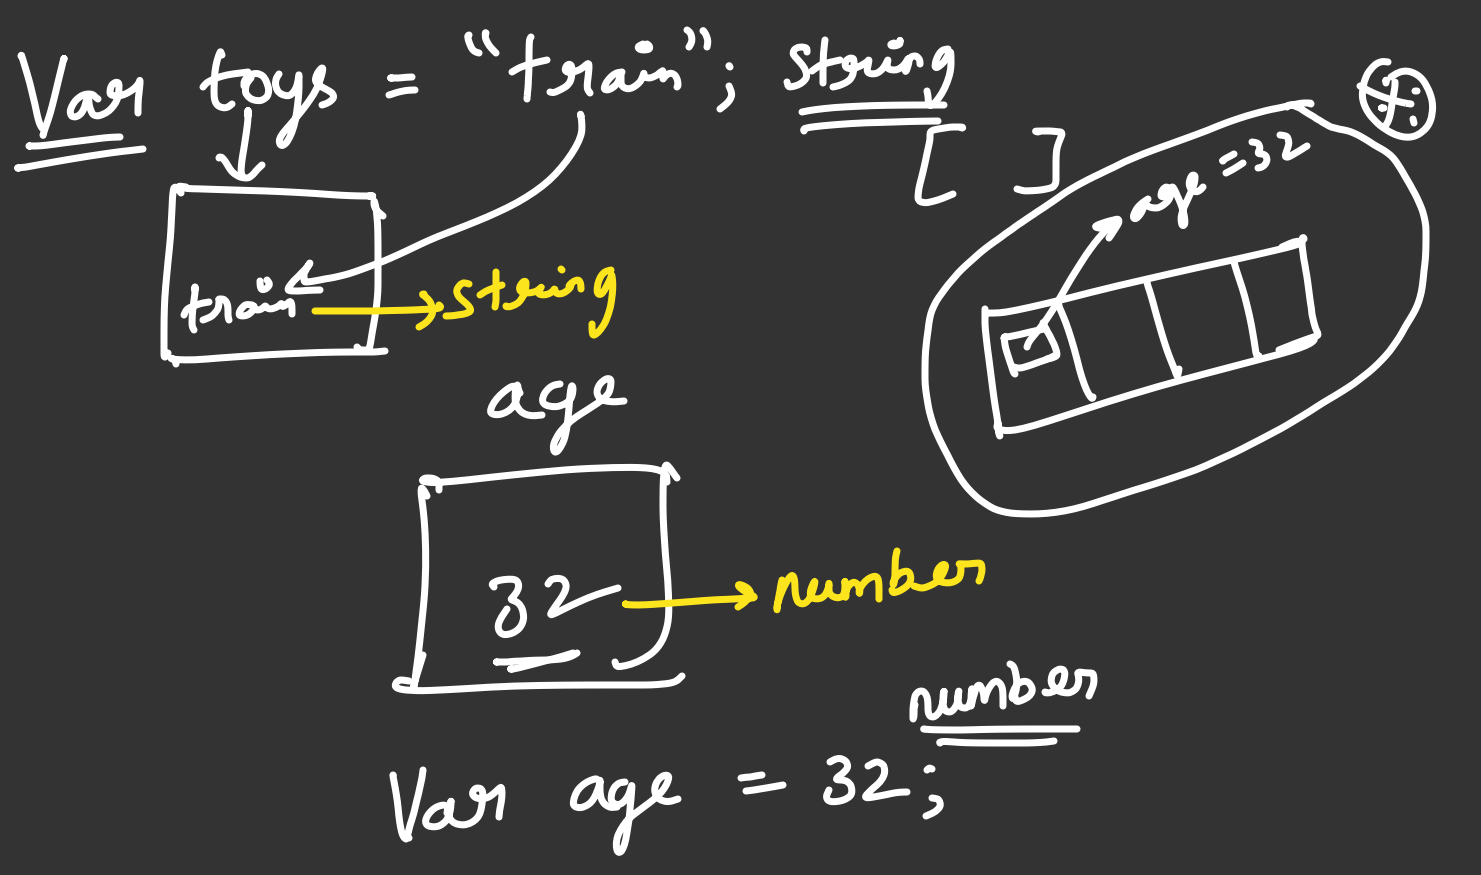 Var toys = "train"; string
[ ]
age = 32
train → string
age
32 → number
number
Var age = 32;